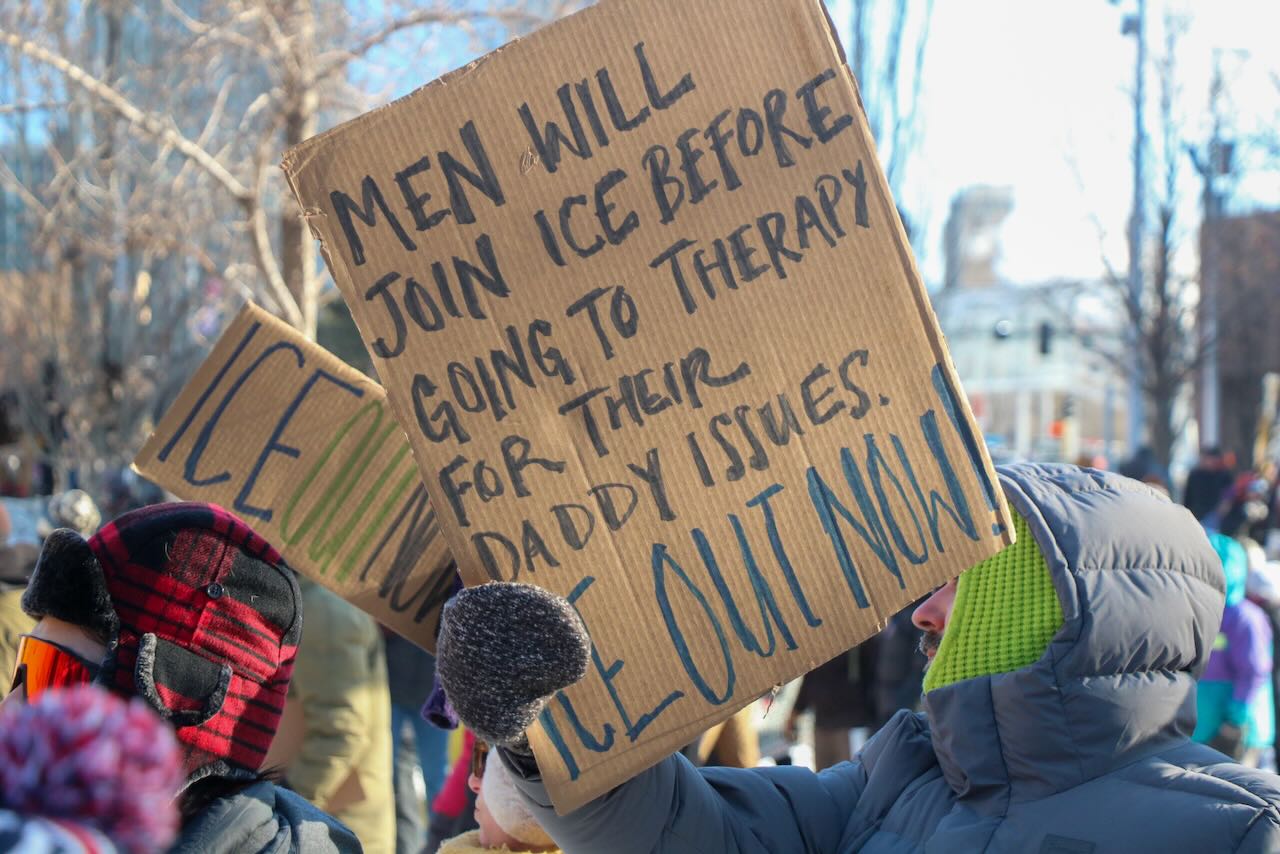 MEN WILL
JOIN ICE BEFORE
GOING TO THERAPY
FOR THEIR
DADDY ISSUES.
ICE OUT NOW!
ICE OUT NOW